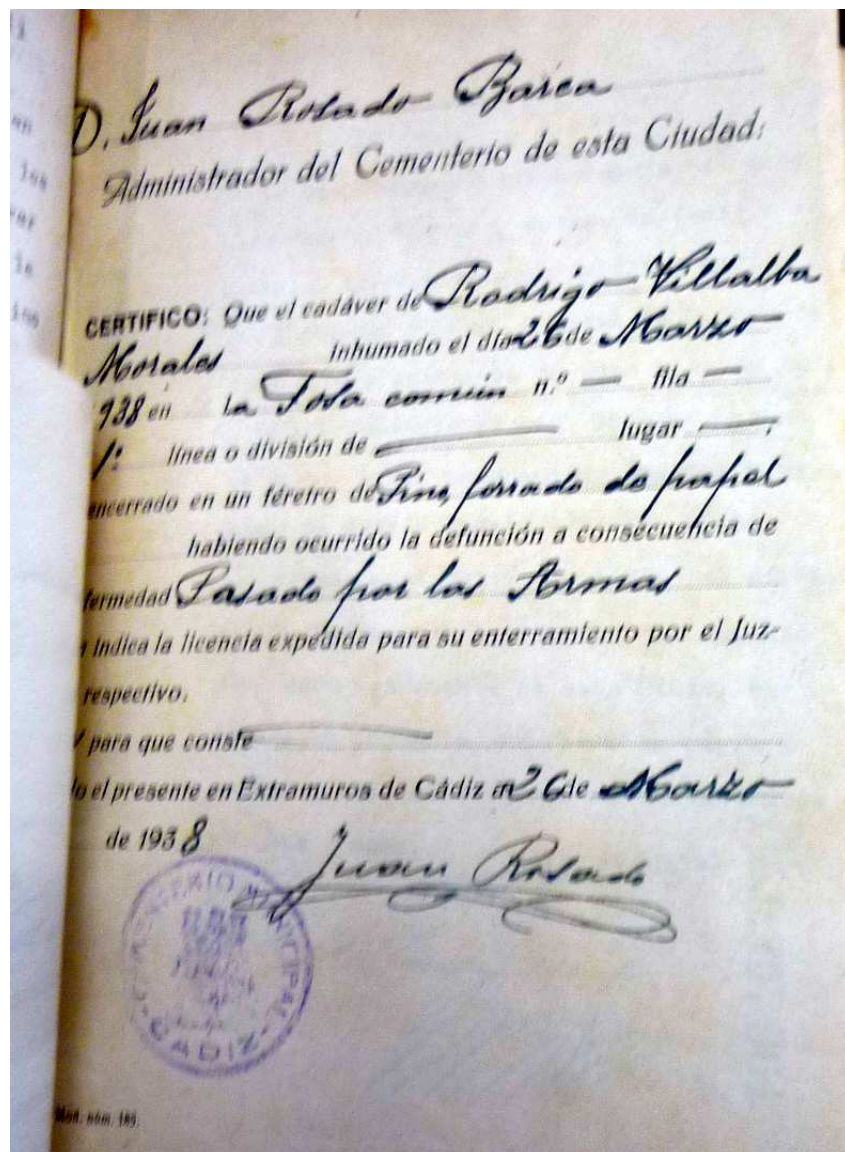 D. Juan Rosado Barea
Administrador del Cementerio de esta Ciudad:
CERTIFICO: Que el cadáver de Rodrigo Villalba
Morales inhumado el día 26 de Marzo
938 en la Fosa común n.º — fila —
1ª línea o división de — lugar —.
encerrado en un féretro de Pino, forrado de papel
habiendo ocurrido la defunción a consecuencia de
fermedad Pasado por las Armas
indica la licencia expedida para su enterramiento por el Juz-
respectivo.
Y para que conste
el presente en Extramuros de Cádiz a 26 de Marzo
de 1938
Juan Rosado
CEMENTERIO MUNICIPAL
CADIZ
Mod. núm. 185.